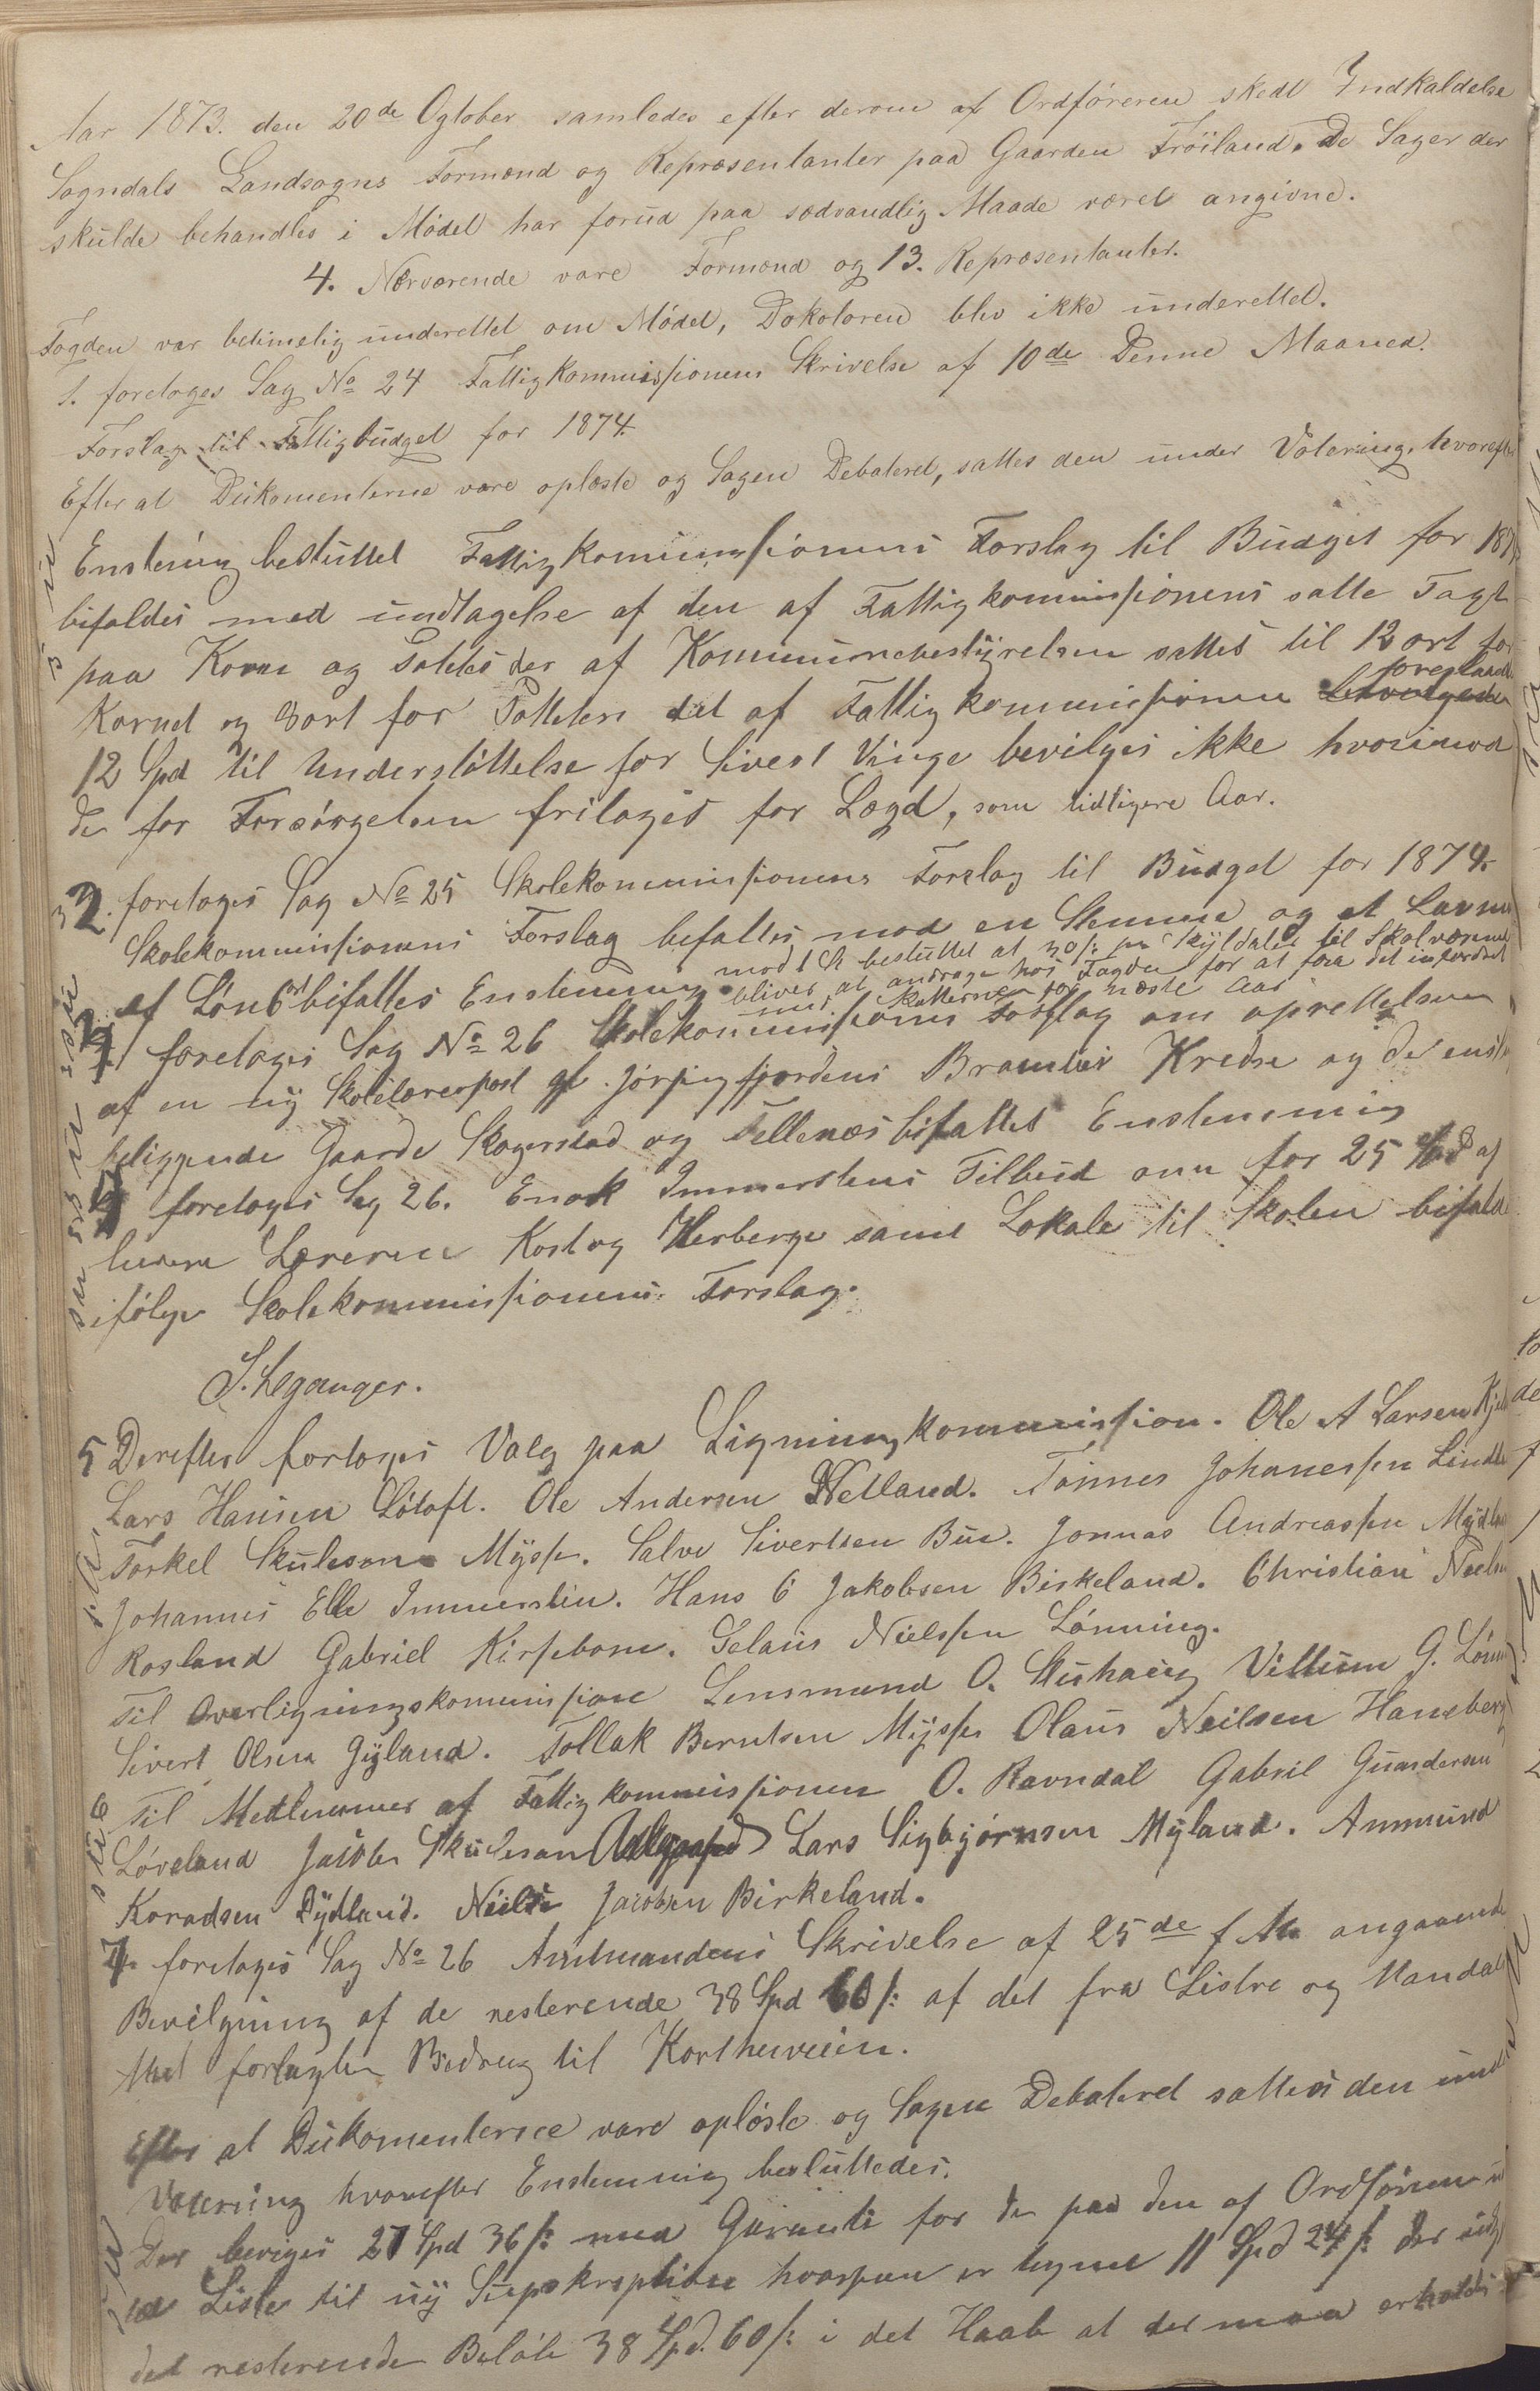 Aar 1873. den 20de Ogtober samledes efter derom af Ordføreren skedt Indkaldelse
Sogndals Landsogns Formænd og Repræsentanter paa Gaarden Frøiland. De Sager der
skulde behandles i Mødet har forud paa sædvandlig Maade været angivne.
4. Nærværende vare Formænd og 13. Repræsentanter.
Fogden var betimelig underettet om Mødet, Dokotoren blev ikke underettet.
1. foretoges Sag No 24 Fattigkommissionens Skrivelse af 10de Denne Maaned.
Forslag til Fattigbudget for 1874.
Efter at Dukomenterne vare oplæste og Sagen Debateret, sattes den under Votering, hvorefter
Enstemig besluttet Fattigkommissionens Forslag til Budget for 187
bifaldes med undtagelse af den af Fattigkommissionens satte Tagt
paa Korn og Potetes der af Kommunebestyrelsen sattes til 12 ort for
Kornet og 3 ort for Potteten det af Fattigkommissionen foreslaaede
12 Spd til Understøttelse for Sivert Vinge bevilges ikke hvorimod
de for Forsørgelsen fritages for Lægd, som tidligere Aar.
2. foretoges Sag No 25 Skolekommissionens Forslag til Budget for 1874.
Skolekommissionens Forslag befaltes mod en Stemme og et
af Løn 6 ort bifaltes Enstemmig mod 1 St besluttet at 30 s. pr Skyldaler til Skolvæsnet
bliver at andrage hos Fogden for at faa det infordret
med Skatterne for næste Aar
3 foretoges Sag No 26 Skolekommissionens Forslag om oprettelsen
af en ny Skolelærerpost gl. Jøssingfjordens Kredse og de
beliggende Gaarde Skogerstad og Tellenes bifaltes Enstemmig
4 foretoges Sag 26. Enok Immerstens Tilbud om for 25 Spd at
levere Læreren Kost og Herberge samt Lokale til Skolen bifalde
ifølge Skolekommissionens Forslag.
S. Leganger.
5 Derefter fortoges Valg paa Ligningkommission. Ole A Larsen
Lars Hansen Løtoft. Ole Andersen Netland. Tønnes Johanessen
Torkel Skuleson Mysse. Salve Sivertsen Bue. Jonnas Andreassen
Johannes Elle Immerstein. Hans C Jakobsen Birkeland. Christian
Rosland Gabriel Kirsebom. Selaus Nielssen Lønning.
Til Overligningskommission Lensmand O. Stuhaug Villum G.
Sivert Olsen Gyland. Tollak Berntsen Mysse Olaus Neilsen Haneberg
Til Medlemmer af Fattigkommissionen O. Ravndal Gabriel Gundersen
Løveland Jakob Skuleson Lars Sigbjørnsen Myland. Ammund
Koradsen Dydland. Neils Jacobsen Birkeland.
7 foretoges Sag No 26 Amtmandens Skrivelse af 25de f. M. angaaende
Bevilgning af de resterende 38 Spd 60 s: af det fra Listre og Mandals
Amt forlagte Bidrag til Kortheveien.
Efter at Dukomenterne vare oplæste og Sagen Debateret sattes den under
Votering hvorefter Enstemmig besluttedes.
Der beviges 27 Spd 36 s: med Garanti for de paa den af Ordføreren
Liste til ny Supskreption hvorpaa er tegnet 11 Spd 24 s: der
det resterende Beløb 38 Spd. 60 s: i det Haab at det maa erholdes